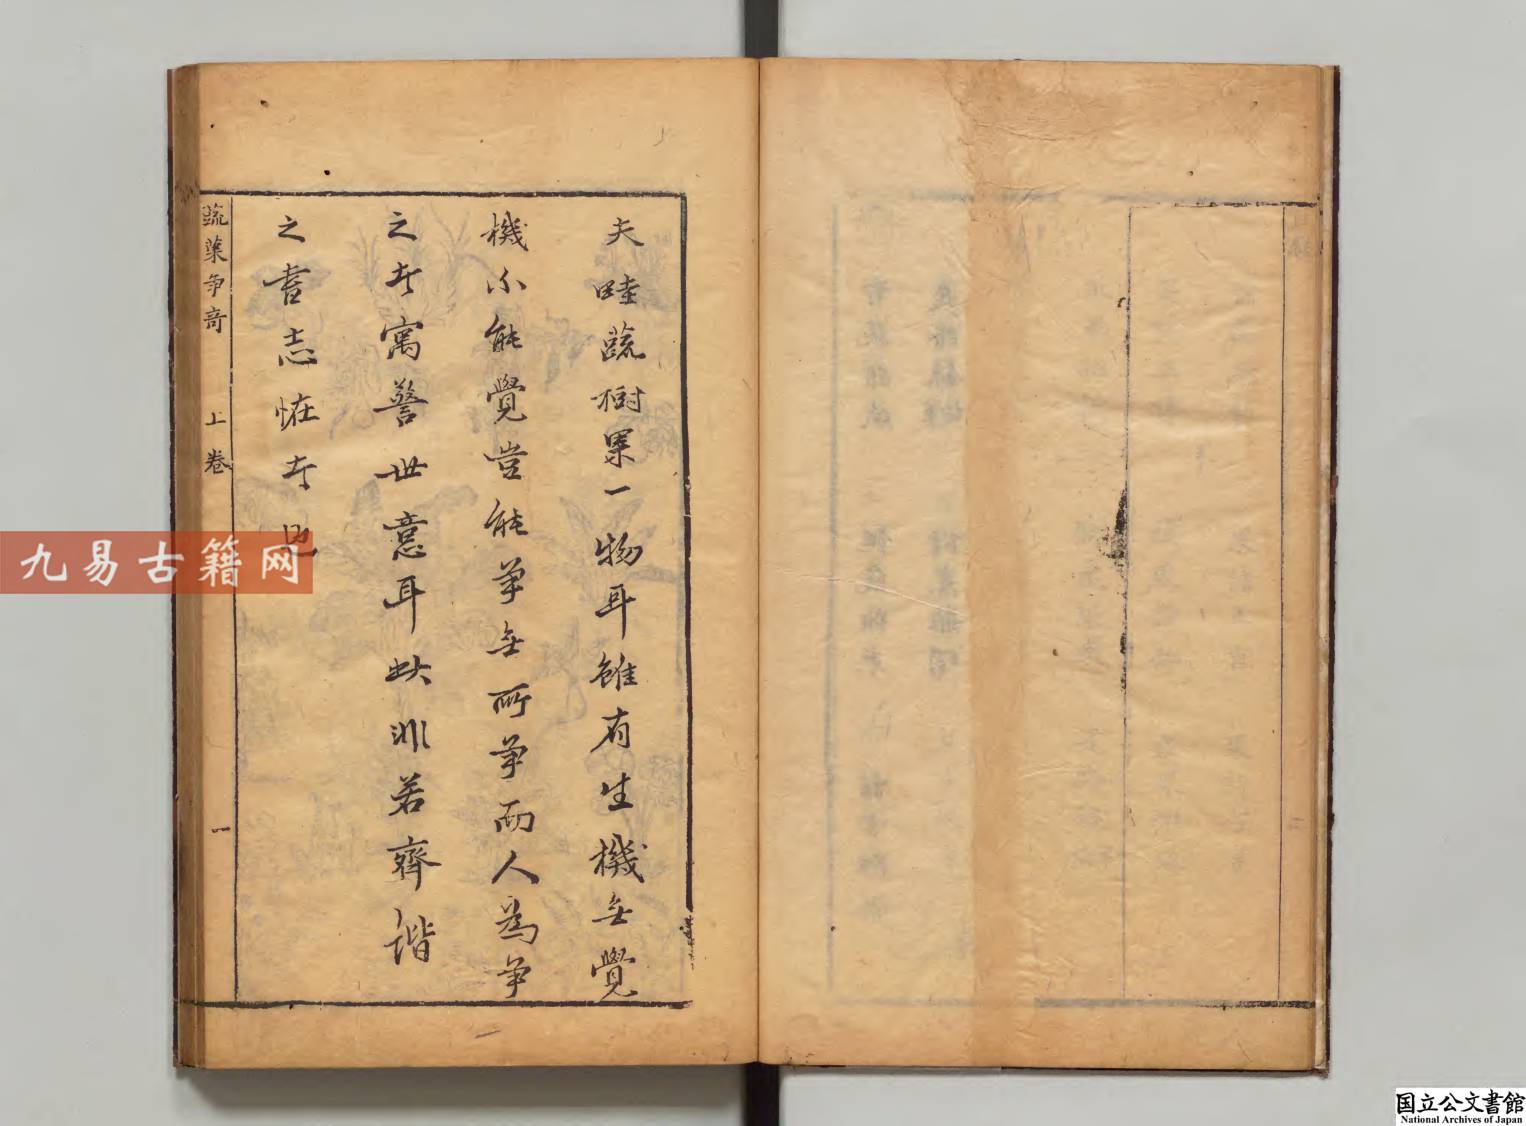 夫畦蔬樹菓一物耳雖有生機無覺
機不能覺豈能爭無所爭而人為爭
之者寓警世意耳然非若齊諧
之書志怪者也
蔬菓争奇
上卷
一
九易古籍网
国立公文書館
National Archives of Japan